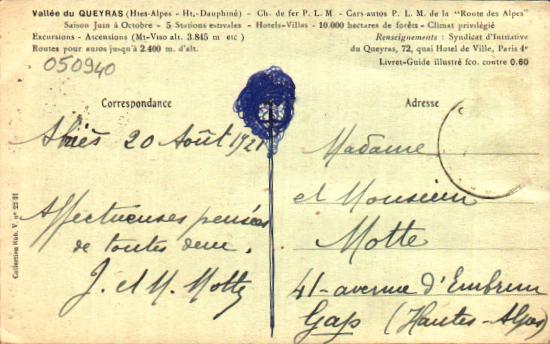 Vallée du QUEYRAS (Htes-Alpes - Ht.-Dauphiné) - Ch. de fer P. L. M. - Cars-autos P. L. M. de la "Route des Alpes"
Saison Juin à Octobre - 5 Stations estivales - Hotels-Villas - 10.000 hectares de forêts - Climat privilégié
Excursions - Ascensions (Mt-Viso alt. 3.845 m etc )
Routes pour autos jusqu'à 2.400 m. d'alt.
Renseignements : Syndicat d'Initiative
du Queyras, 72, quai Hotel de Ville, Paris 4e
Livret-Guide illustré fco. contre 0.60
050940
Correspondance
Abriès 20 Août 1921
Affectueuses pensées
de toutes deux.
J. et M. Motte
Adresse
Madame
et Monsieur
Motte
41 - avenue d'Embrun
Gap (Hautes-Alpes)
Collection Rob. V. n° 22 21